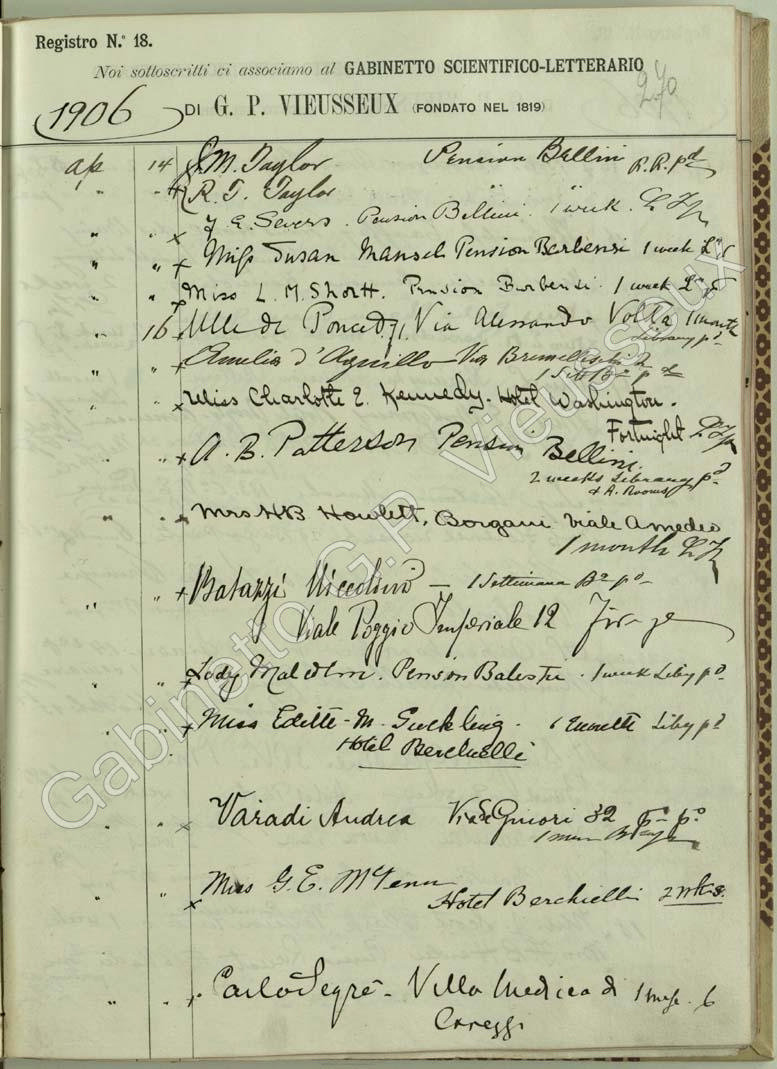 Registro N.º 18.
Noi sottoscritti ci associamo al GABINETTO SCIENTIFICO-LETTERARIO
270
1906 DI G. P. VIEUSSEUX (FONDATO NEL 1819)
ap 14 J. M. Taylor Pension Bellini R.R. pd
" " x R. T. Taylor " "
" " x J E. Severs. Pension Bellini. 1 week.
" " x Miss Susan Mansel Pension Barbensi 1 week
" " x Miss L. M. Shortt. Pension Barbensi. 1 week
" 16 Mlle de Via Alessandro Volta 1 month
Library pd
" x Amelia d'Aguillo Via Brunelleschi 2
1
" x Miss Charlotte E. Kennedy. Hotel Washington.
Fortnight
" " x A. B. Patterson Pension Bellini.
2 weeks Library pd
& R. Rooms
" " x Mrs H B Howlett, Borgani Viale Amedeo
1 month
" " x Batazzi Niccolino — 1 Settimana
Viale Poggio Imperiale 12
" " x Lady Malcolm. Pension Balestri. 1 week Liby pd
" " x Miss Edith M. Suckling. Liby pd
Hotel Berchielli
" " x Varadi Andrea Via Ginori 32
1
" " x Miss G. E.
Hotel Berchielli 2 wks.
" " x Carlo Segrè - Villa Medicea di 1
Careggi
Gabinetto G.P. Vieusseux